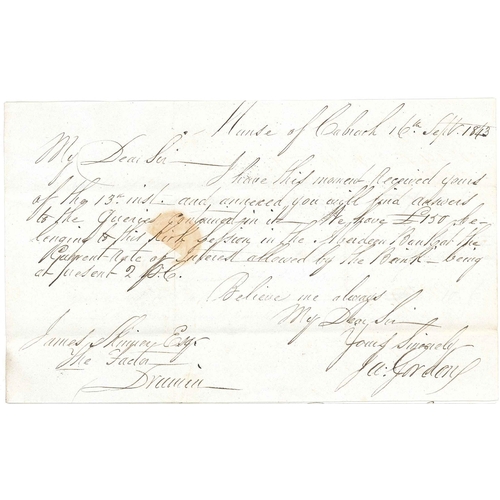 Manse of Cabrach 16th Septr. 1843
My Dear Sir
I have this moment Received yours
of the 13th inst. and annexed you will find answers
to the Queries Contained in it - We have £150 be-
longing to this Kirk Session in the Aberdeen Bank at the
Current Rate of Interest allowed by the Bank - being
at present 2 P.C.
Believe me always
My Dear Sir
Yours Sincerely
Ja: Gordon
James Skinner Esqr
The Factor
Drumin